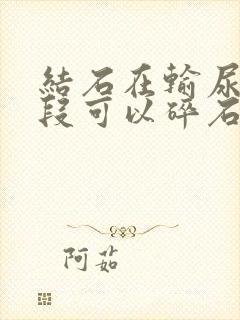 結石在輸尿
段可以碎石
阿茹